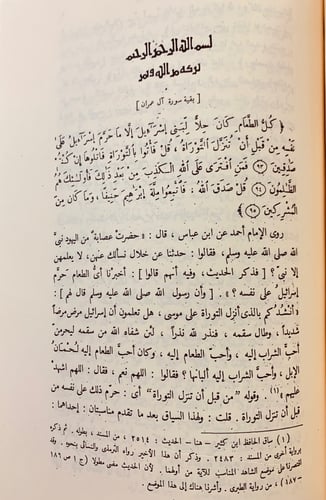 بسم الله الرحمن الرحيم
بركة من الله ونصر
[ بقية سورة آل عمران ]
﴿ كُلُّ الطَّعَامِ كَانَ حِلًّا لِبَنِي إِسْرَآءِيلَ إِلَّا مَا حَرَّمَ إِسْرَآءِيلُ عَلَى
نَفْسِهِ مِنْ قَبْلِ أَنْ تُنَزَّلَ التَّوْرَاةُ ، قُلْ فَأْتُوا بِالتَّوْرَاةِ فَاتْلُوهَا إِنْ كُنْتُمْ
صَادِقِينَ ﴿٩٣﴾ فَمَنِ افْتَرَى عَلَى اللهِ الْكَذِبَ مِنْ بَعْدِ ذَلِكَ فَأُولَئِكَ هُمُ
الظَّالِمُونَ ﴿٩٤﴾ قُلْ صَدَقَ اللهُ ، فَاتَّبِعُوا مِلَّةَ إِبْرَاهِيمَ حَنِيفًا ، وَمَا كَانَ مِنَ
الْمُشْرِكِينَ ﴿٩٥﴾ ﴾
روى الإمام أحمد عن ابن عباس ، قال : « حضرتْ عصابةٌ من اليهود نبيَّ
الله صلى الله عليه وسلم، فقالوا : حدثنا عن خلال نسألك عنهن، لا يعلمهن
إلا نبي ؟ [ فذكر الحديث، وفيه أنهم قالوا ] : أخبرنا أيُّ الطعام حَرَّم
إسرائيلُ على نفسه ؟ » . [ وأن رسول الله صلى الله عليه وسلم قال لهم ] :
« أنشُدُكم بالذى أنزل التوراة على موسى ، هل تعلمون أن إسرائيل مرض مرضاً
شديداً ، وطال سقمه ، فنذر لله نذراً ، لئن شفاه الله من سقمه ليحرمن
أحبَّ الشراب إليه ، وأحبَّ الطعام إليه ، وكان أحبَّ الطعام إليه لُحْمَانُ
الإبل ، وأحب الشراب إليه ألبانها ؟ فقالوا : اللهم نعم ، فقال : اللهم اشهد
عليهم »(١) . وقوله « من قبل أن تنزل التوراة » أى : حرّم ذلك على نفسه من
قبل أن تنزل التوراة . قلت : ولهذا السياق بعد ما تقدم مناسبتان : إحداهما :
(١) ساق الحافظ ابن كثير – هنا – الحديث : ٢٥١٤ ، من المسند ، بطوله . ثم ذكره
برواية أخرى من المسند : ٢٤٨٣ . وذكر أن هذا الأخير رواه الترمذى والنسائى بنحوه . وقد
اقتصرنا على موضع الشاهد المناسب للآية من أولهما . لأن الحديث مضى مطولا ( ج ١ ص ١٨٦
– ١٨٧ ) ، من رواية الطبرى . وأشرنا إلى هذا الموضع .